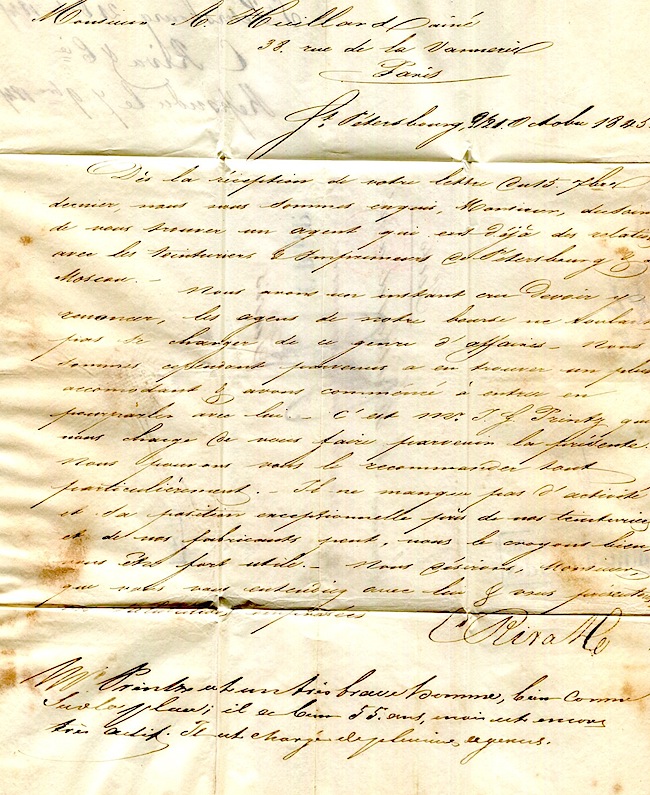 Monsieur A. Huillard ainé
38. rue de la Vannerie
Paris
St. Pétersbourg, 9/21. Octobre 1845.
Dès la réception de votre lettre du 15. 7bre
dernier, nous nous sommes enquis, Monsieur, du soin
de vous trouver un agent qui eut déjà des relations
avec les teinturiers & Imprimeurs de Pétersbourg &
Moscou. — Nous avons un instant cru devoir y
renoncer, les agens de notre bourse ne voulant
pas se charger de ce genre d'affaires — Nous
sommes cependant parvenus a en trouver un plus
accomodant & avons commencé à entrer en
pourparler avec lui — C'est Mr. J. G. Printz que
nous charge de vous faire parvenir la présente.
Nous pouvons vous le recommander tout
particulièrement. — Il ne manque pas d'activité
et sa position exceptionnelle près de nos teinturiers
et de nos fabricants peut, nous le croyons bien,
vous être fort utile. — Nous désirons, Monsieur,
que vous vous entendiez avec lui & vous
Cs Riva & Co
Mr. Printz est un très brave homme, bien connu
sur la place; il a bien 55. ans, mais est encore
très actif. Il est chargé de plusieurs agences.
C Riva & Co
Répondu le 7 9bre